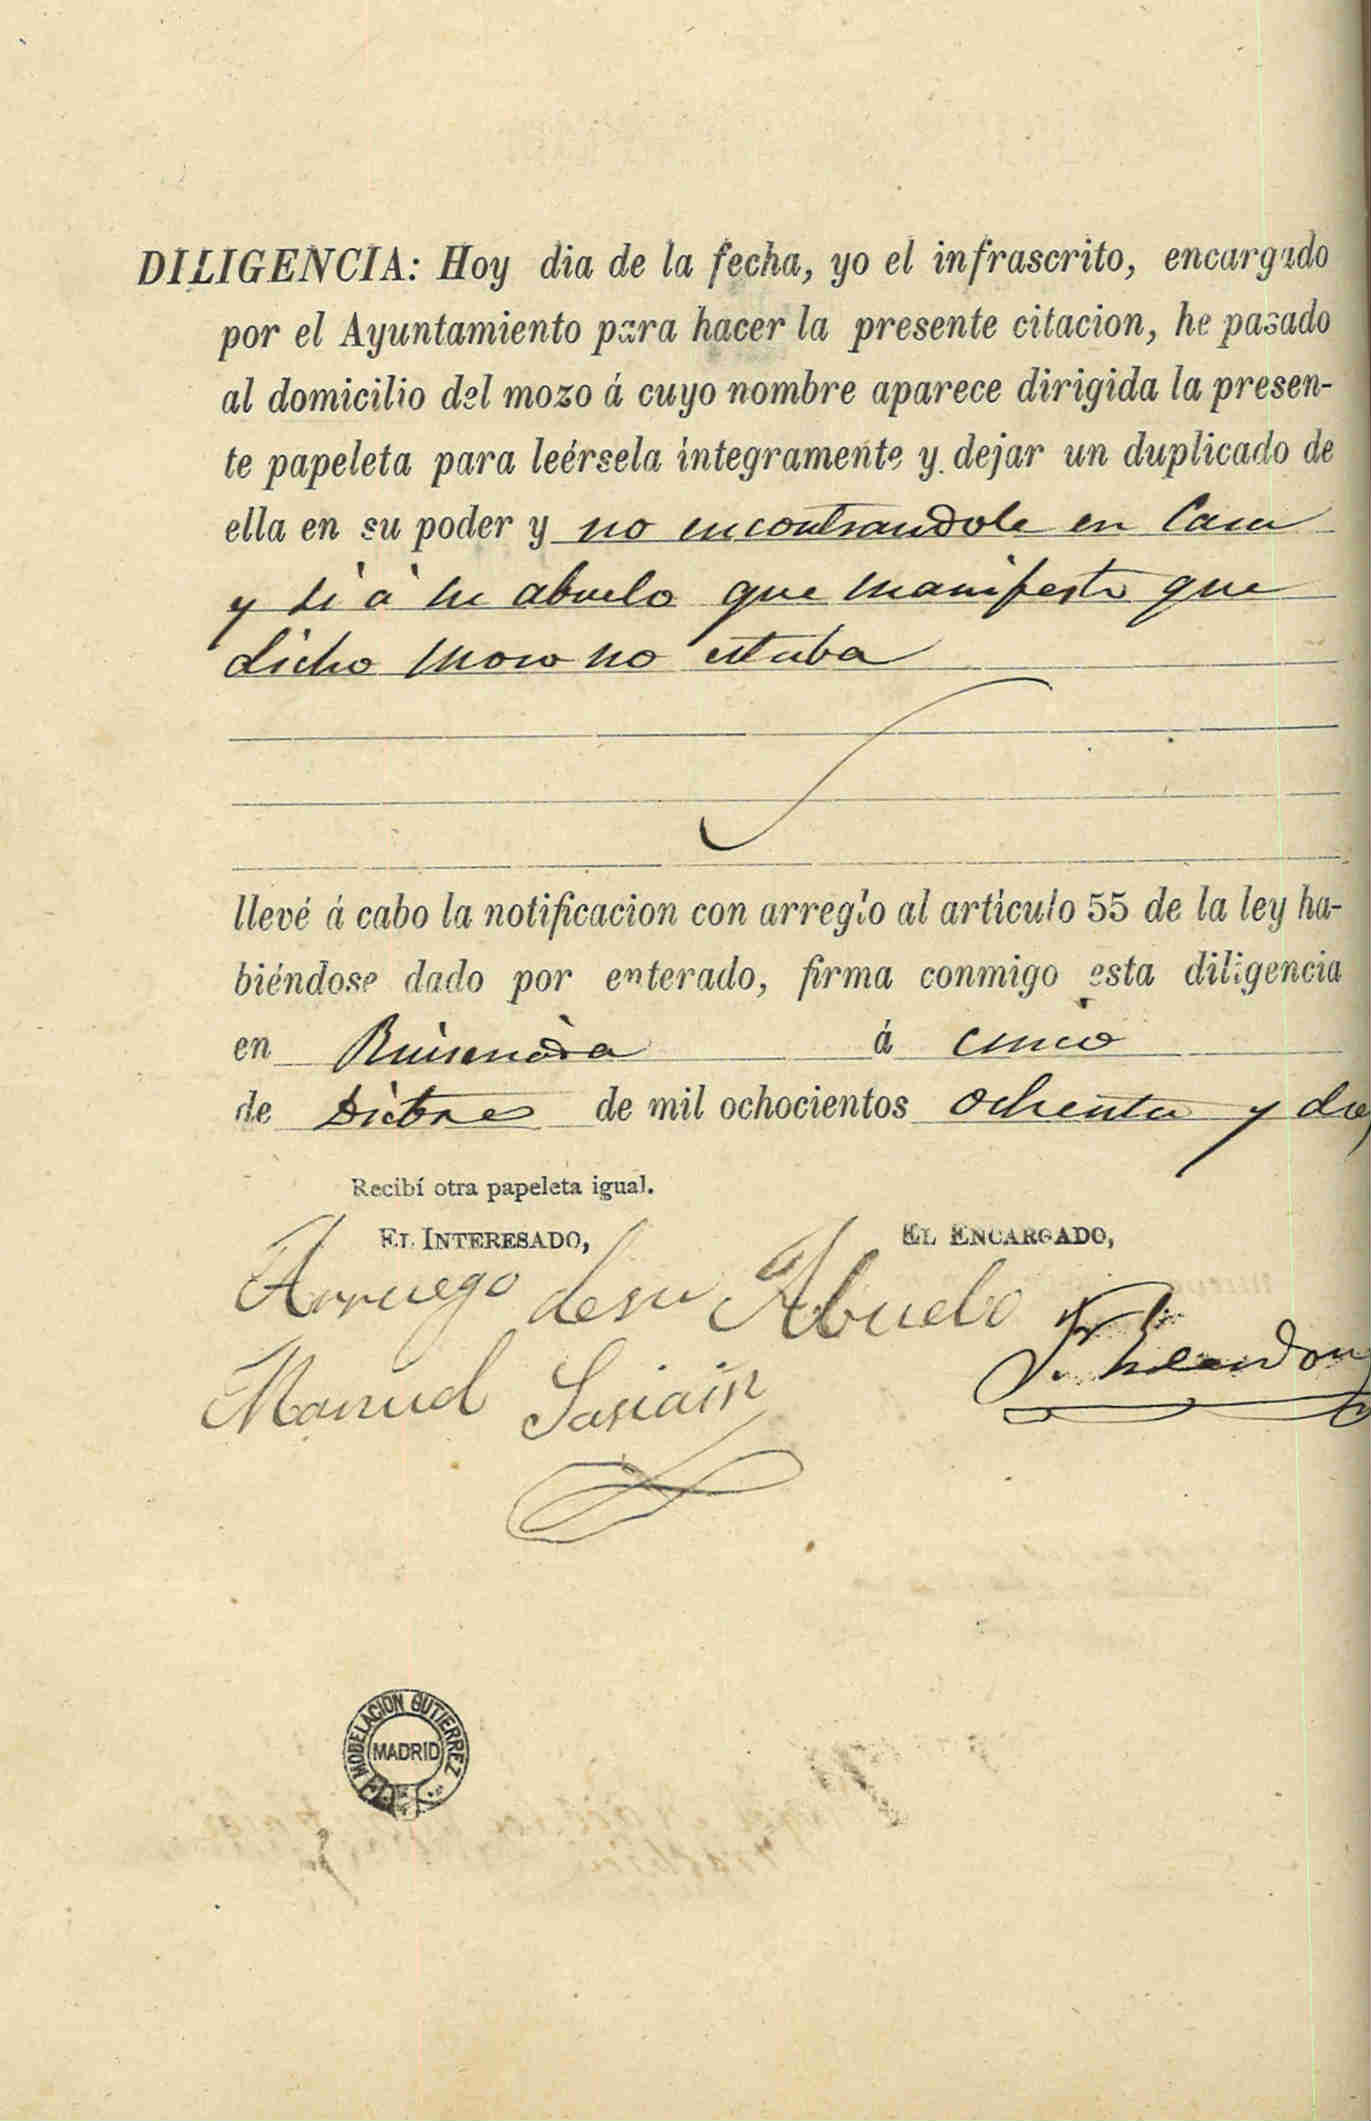 DILIGENCIA: Hoy dia de la fecha, yo el infrascrito, encargado
por el Ayuntamiento para hacer la presente citacion, he pasado
al domicilio del mozo á cuyo nombre aparece dirigida la presen-
te papeleta para leérsela integramente y dejar un duplicado de
ella en su poder y no encontrandole en Casa
y si á su abuelo que manifesto que
dicho moso no estaba
llevé á cabo la notificacion con arreglo al articulo 55 de la ley ha-
biéndose dado por enterado, firma conmigo esta diligencia
en á cinco
de Dicbre de mil ochocientos ochenta y dos
Recibí otra papeleta igual.
EL INTERESADO,
EL ENCARGADO,
Arruego de su Abuelo
Manuel Sasiain
MODELACION GUTIERREZ
MADRID